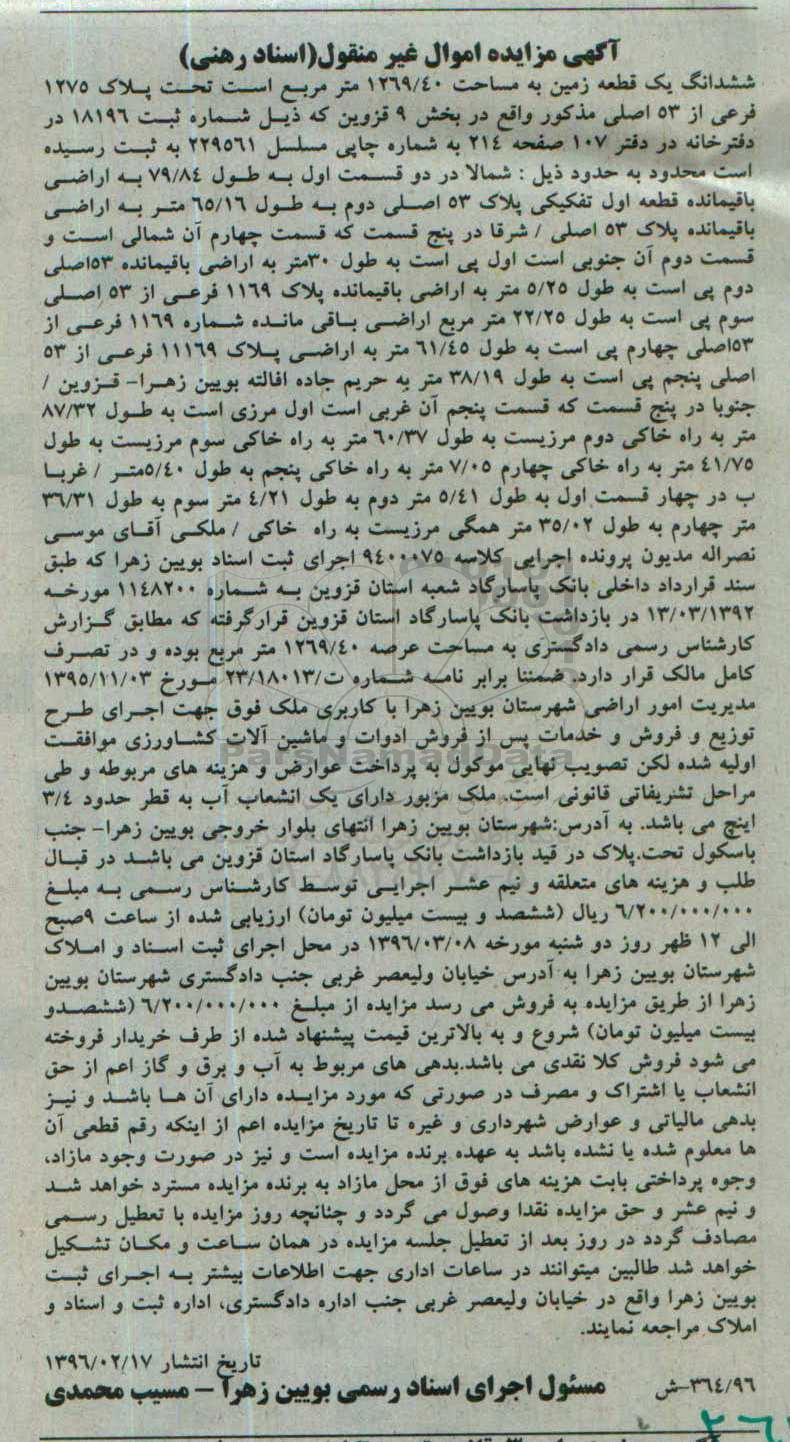 آگهی مزایده اموال غیر منقول(اسناد رهنی)
ششدانگ یک قطعه زمین به مساحت ۱۲۶۹/٤۰ متر مربع است تحت پلاک ۱۲۷۵
فرعی از ۵۳ اصلی مذکور واقع در بخش ۹ قزوین که ذیل شماره ثبت ۱۸۱۹٦ در
دفترخانه در دفتر ۱۰۷ صفحه ۲۱٤ به شماره چاپی مسلسل ۲۲۹۵٦۱ به ثبت رسیده
است محدود به حدود ذیل : شمالا در دو قسمت اول به طول ۷۹/۸٤ به اراضی
باقیمانده قطعه اول تفکیکی پلاک ۵۳ اصلی دوم به طول ٦۵/۱٦ متر به اراضی
باقیمانده پلاک ۵۳ اصلی / شرقا در پنج قسمت که قسمت چهارم آن شمالی است و
قسمت دوم آن جنوبی است اول پی است به طول ۳۰متر به اراضی باقیمانده ۵۳اصلی
دوم پی است به طول ۵/۲۵ متر به اراضی باقیمانده پلاک ۱۱٦۹ فرعی از ۵۳ اصلی
سوم پی است به طول ۲۲/۲۵ متر مربع اراضی باقی مانده شماره ۱۱٦۹ فرعی از
۵۳اصلی چهارم پی است به طول ٦۱/٤۵ متر به اراضی پلاک ۱۱۱٦۹ فرعی از ۵۳
اصلی پنجم پی است به طول ۳۸/۱۹ متر به حریم جاده افالته بویین زهرا- قزوین /
جنوبا در پنج قسمت که قسمت پنجم آن غربی است اول مرزی است به طول ۸۷/۳۲
متر به راه خاکی دوم مرزیست به طول ٦۰/۳۷ متر به راه خاکی سوم مرزیست به طول
٤۱/۷۵ متر به راه خاکی چهارم ۷/۰۵ متر به راه خاکی پنجم به طول ۵/٤۰متر / غربا
ب در چهار قسمت اول به طول ۵/٤۱ متر دوم به طول ٤/۲۱ متر سوم به طول ۳٦/۳۱
متر چهارم به طول ۳۵/۰۲ متر همگی مرزیست به راه خاکی / ملکی آقای موسی
نصراله مدیون پرونده اجرایی کلاسه ۹٤۰۰۰۷۵ اجرای ثبت اسناد بویین زهرا که طبق
سند قرارداد داخلی بانک پاسارگاد شعبه استان قزوین به شماره ۱۱٤۸۲۰۰ مورخه
۱۳/۰۳/۱۳۹۲ در بازداشت بانک پاسارگاد استان قزوین قرارگرفته که مطابق گزارش
کارشناس رسمی دادگستری به مساحت عرصه ۱۲٦۹/٤۰ متر مربع بوده و در تصرف
کامل مالک قرار دارد. ضمننا برابر نامه شماره ت/۲۳/۱۸۰۱۳ مورخ ۱۳۹۵/۱۱/۰۳
مدیریت امور اراضی شهرستان بویین زهرا با کاربری ملک فوق جهت اجرای طرح
توزیع و فروش و خدمات پس از فروش ادوات و ماشین آلات کشاورزی موافقت
اولیه شده لکن تصویب نهایی موکول به پرداخت عوارض و هزینه های مربوطه و طی
مراحل تشریفاتی قانونی است. ملک مزبور دارای یک انشعاب آب به قطر حدود ۳/٤
اینچ می باشد. به آدرس:شهرستان بویین زهرا انتهای بلوار خروجی بویین زهرا- جنب
باسکول تحت.پلاک در قید بازداشت بانک پاسارگاد استان قزوین می باشد در قبال
طلب و هزینه های متعلقه و نیم عشر اجرایی توسط کارشناس رسمی به مبلغ
٦/۲۰۰/۰۰۰/۰۰۰ ریال (ششصد و بیست میلیون تومان) ارزیابی شده از ساعت ۹صبح
الی ۱۲ ظهر روز دو شنبه مورخه ۱۳۹٦/۰۳/۰۸ در محل اجرای ثبت اسناد و املاک
شهرستان بویین زهرا به آدرس خیابان ولیعصر غربی جنب دادگستری شهرستان بویین
زهرا از طریق مزایده به فروش می رسد مزایده از مبلغ ٦/۲۰۰/۰۰۰/۰۰۰ (ششصدو
بیست میلیون تومان) شروع و به بالاترین قیمت پیشنهاد شده از طرف خریدار فروخته
می شود فروش کلا نقدی می باشد.بدهی های مربوط به آب و برق و گاز اعم از حق
انشعاب یا اشتراک و مصرف در صورتی که مورد مزایده دارای آن ها باشد و نیز
بدهی مالیاتی و عوارض شهرداری و غیره تا تاریخ مزایده اعم از اینکه رقم قطعی آن
ها معلوم شده یا نشده باشد به عهده برنده مزایده است و نیز در صورت وجود مازاد،
وجوه پرداختی بابت هزینه های فوق از محل مازاد به برنده مزایده مسترد خواهد شد
و نیم عشر و حق مزایده نقدا وصول می گردد و چنانچه روز مزایده با تعطیل رسمی
مصادف گردد در روز بعد از تعطیل جلسه مزایده در همان ساعت و مکان تشکیل
خواهد شد طالبین میتوانند در ساعات اداری جهت اطلاعات بیشتر به اجرای ثبت
بویین زهرا واقع در خیابان ولیعصر غربی جنب اداره دادگستری، اداره ثبت و اسناد و
املاک مراجعه نمایند.
تاریخ انتشار ۱۳۹٦/۰۲/۱۷
۳٦٤/۹٦-ش مسئول اجرای اسناد رسمی بویین زهرا – مسیب محمدی